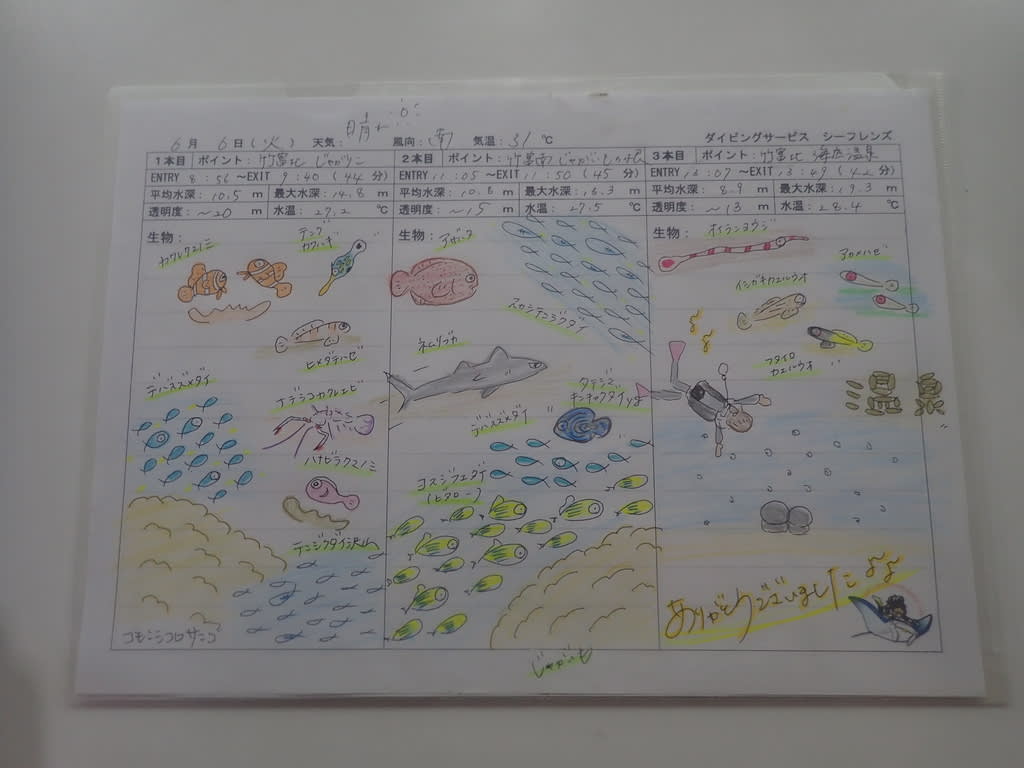 6月 6日(火) 天気: 晴れ 風向: 南 気温: 31 ℃ ダイビングサービス シーフレンズ
1本目 ポイント: 竹富北 じゃがっこ
ENTRY 8:56 ~EXIT 9:40 (44 分)
平均水深: 10.5 m 最大水深: 14.8 m
透明度: ~20 m 水温: 27.2 ℃
生物:
カクレクマノミ
テング
カワハギ
ヒメダテハゼ
デバスズメダイ
ナデシコカクレエビ
ハナビラクマノミ
テンジクダイ沢山
コモンシコロサンゴ
2本目 ポイント: 竹富南
ENTRY 11:05 ~EXIT 11:50 (45 分)
平均水深: 10.8 m 最大水深: 16.3 m
透明度: ~15 m 水温: 27.5 ℃
生物:
アザハタ
スカシテンジクダイ
ネムリブカ
タテジマ
キンチャクダイyg
デバスズメダイ
ヨスジフエダイ
(ビタロー)
じゃがいも
3本目 ポイント: 竹富北 海底温泉
ENTRY 13:07 ~EXIT 13:49 (42 分)
平均水深: 8.9 m 最大水深: 19.3 m
透明度: ~13 m 水温: 28.4 ℃
生物:
オイランヨウジ
アカメハゼ
イシガキカエルウオ
フタイロ
カエルウオ
温泉
ありがとうございました